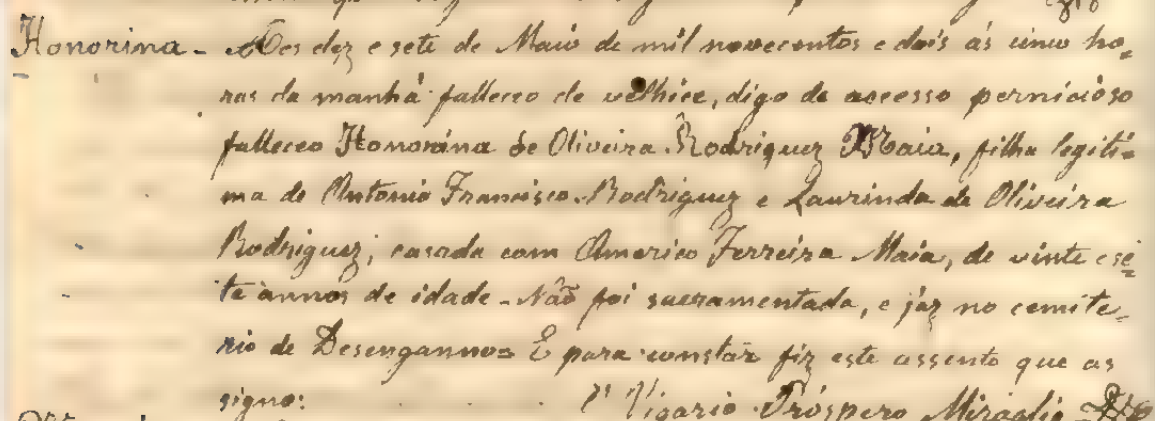 Honorina - Aos dez e sete de Maio de mil novecentos e dois ás cinco ho-
ras da manhã falleceo de velhice, digo de accesso pernicioso
falleceo Honorina de Oliveira Rodriguez Maia, filha legiti-
ma de Antonio Francisco Rodriguez e Laurinda de Oliveira
Rodriguez; casada com Americo Ferreira Maia, de vinte e sé-
te annos de idade - Não foi sacramentada, e jáz no cemite-
rio de Desenganno = E para constar fiz este assento que as
signo: Vigario Próspero Miraglia